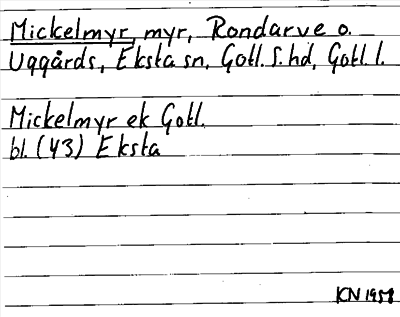 Mickelmyr, myr, Rondarve o.
Uggårds, Eksta sn, Gotl. S. hd, Gotl. l.
Mickelmyr ek Gotl.
bl. (43) Eksta
KN 1958